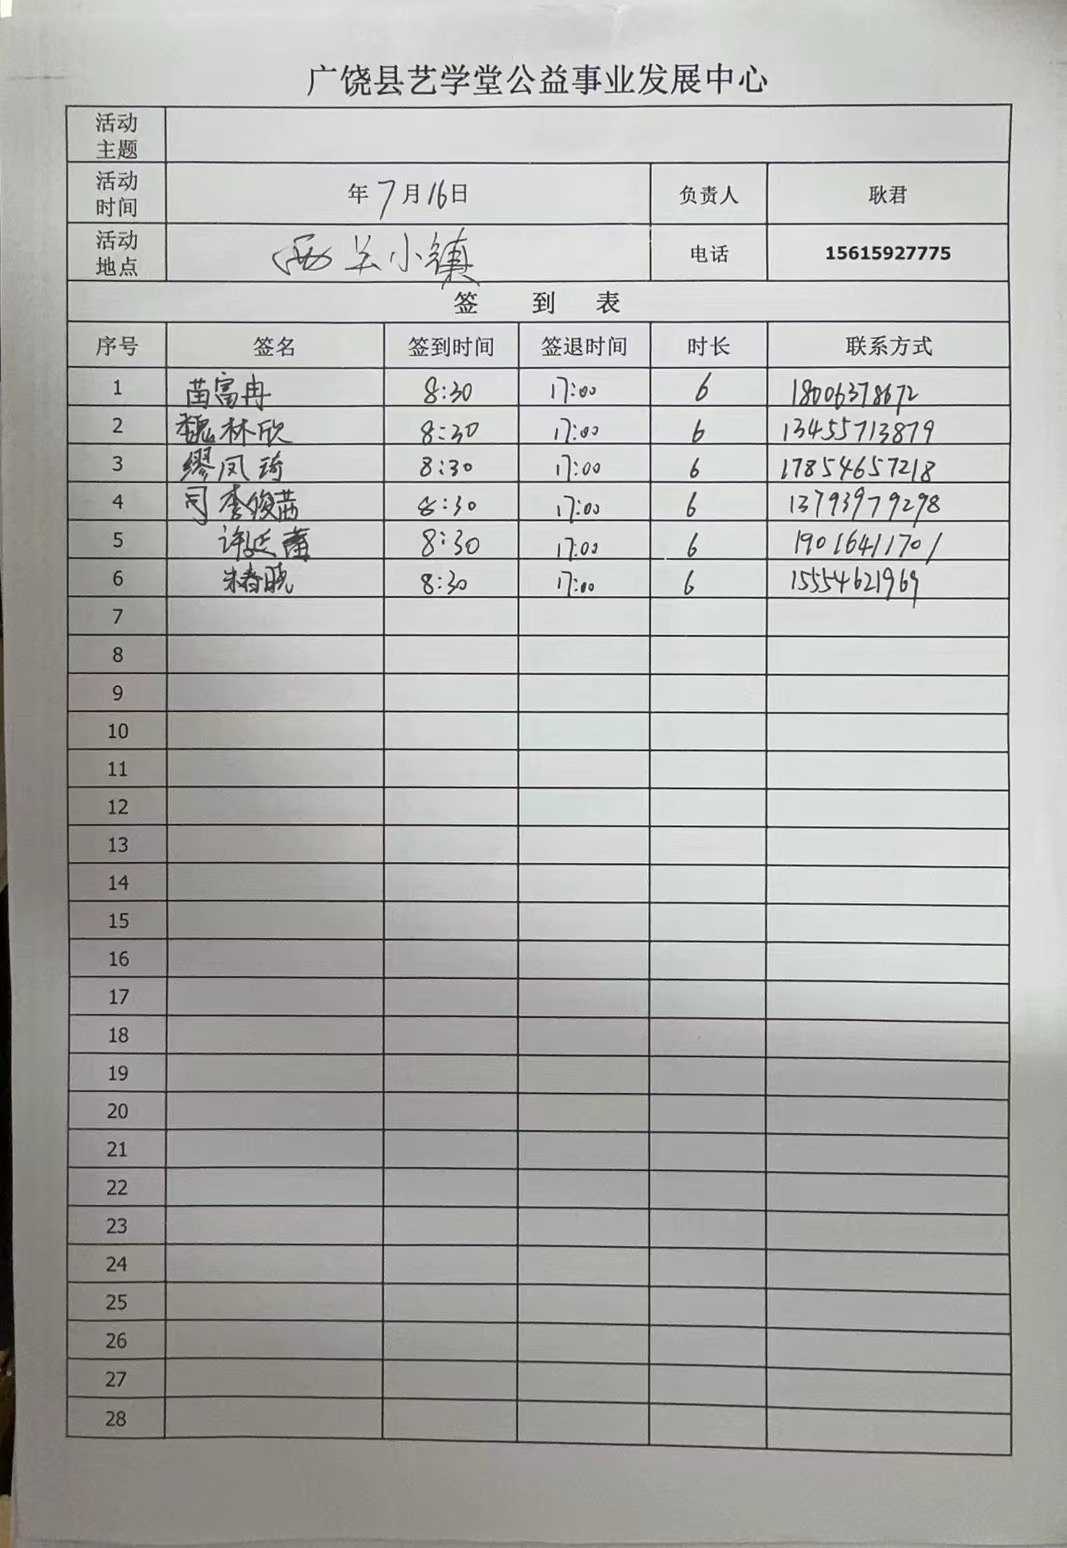 广饶县艺学堂公益事业发展中心
活动主题
活动时间 年7月16日 负责人 耿君
活动地点 西关小镇 电话 15615927775
签 到 表
序号 签名 签到时间 签退时间 时长 联系方式
1 苗富冉 8:30 17:00 6 18006378672
2 魏林欣 8:30 17:00 6 13455713879
3 缪凤琦 8:30 17:00 6 17854657218
4 司李俊茜 8:30 17:00 6 13793979298
5 许延 8:30 17:00 6 19016411701
6 朱春晓 8:30 17:00 6 15554621969
7
8
9
10
11
12
13
14
15
16
17
18
19
20
21
22
23
24
25
26
27
28